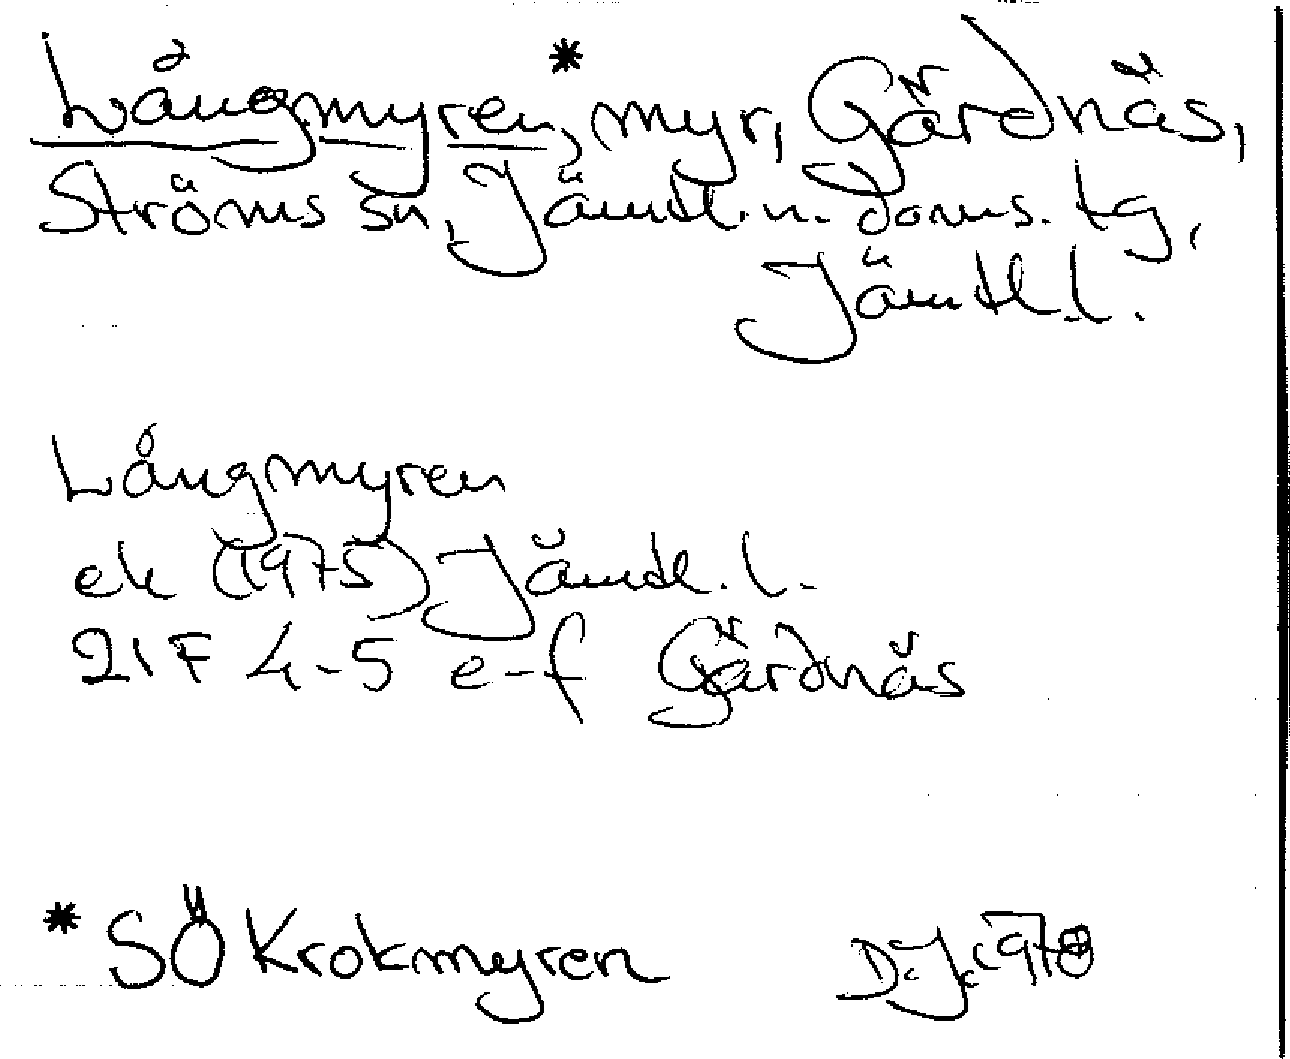 Långmyren*, myr, Gärdnäs,
Ströms sn, Jämtl. n. doms. tg,
Jämtl. l.
Långmyren
ek (1975) Jämtl. l.
21F 4-5 e-f Gärdnäs
* SÖ Krokmyren
D.J. 1978